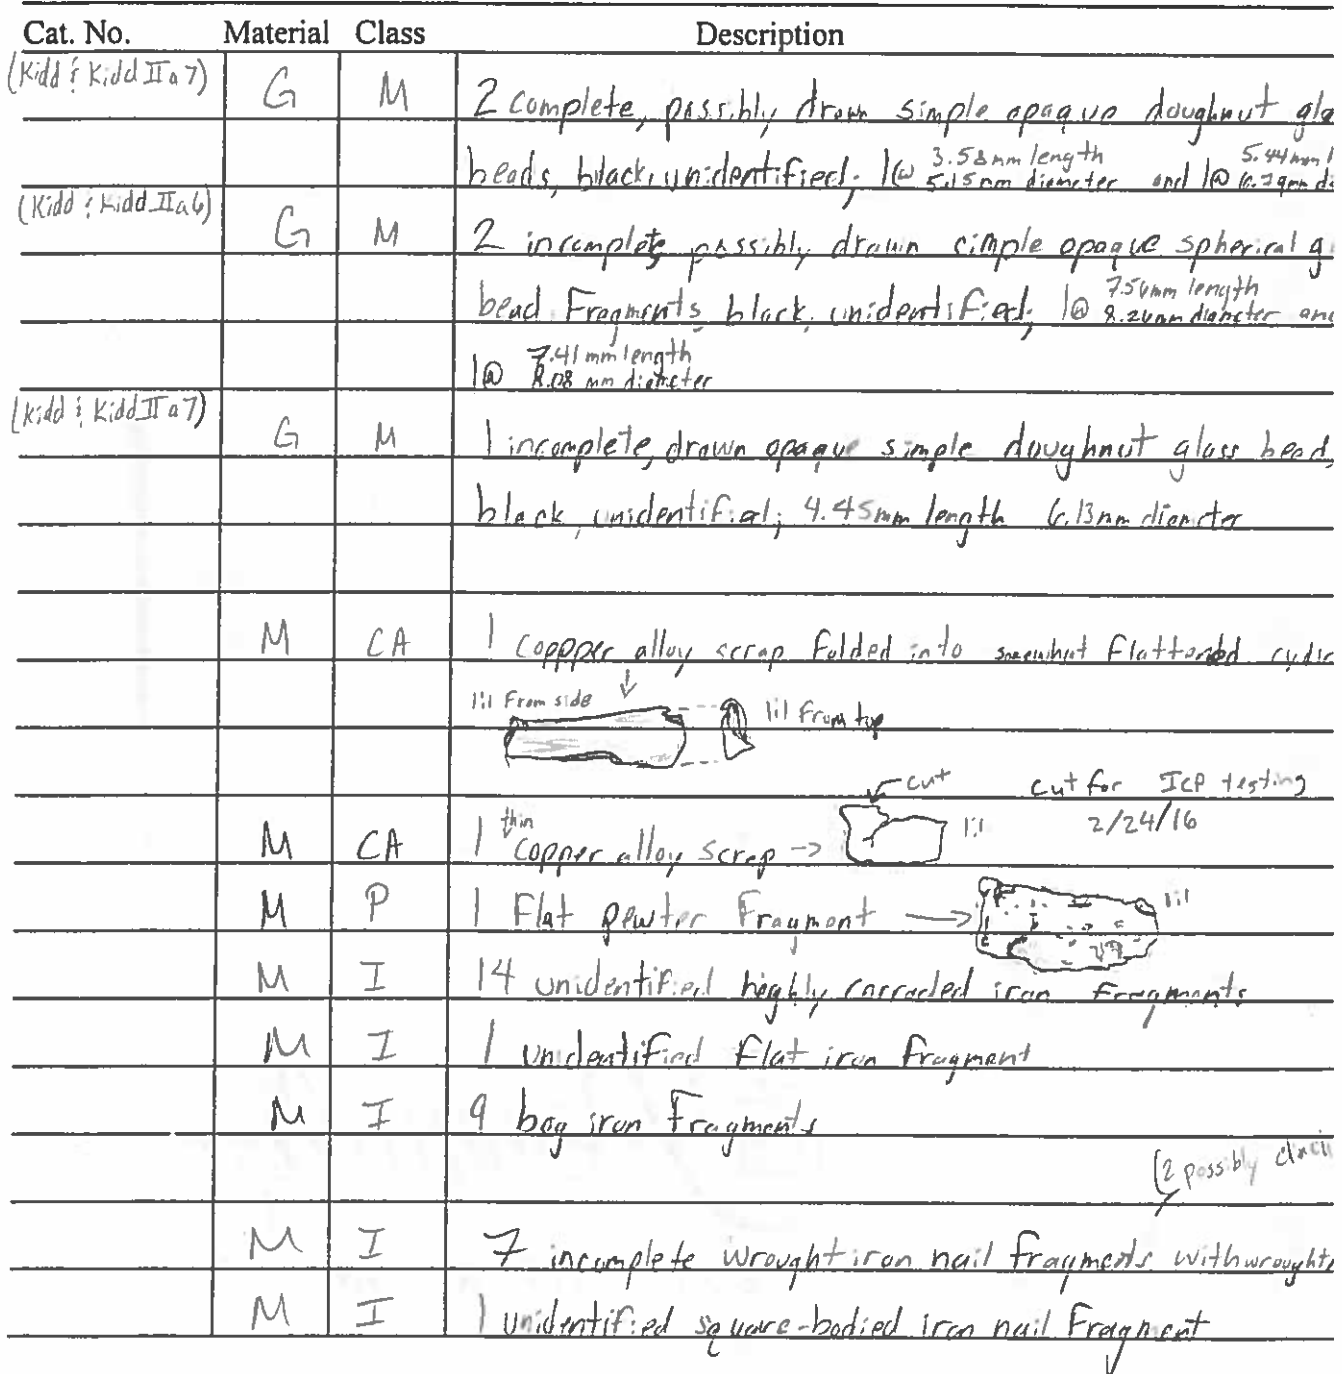 Cat. No. Material Class Description
(Kidd & Kidd IIa7) G M 2 complete, possibly drawn simple opaque doughnut gla
beads, black, unidentified; 1@ 3.58mm length 5.15mm diameter and 1@ 5.44mm l
(Kidd & Kidd IIa6) G M 2 incomplete possibly drawn simple opaque spherical g
bead Fragments black, unidentified; 1@ 7.56mm length 8.26mm diameter and
1@ 7.41 mm length 8.08 mm diameter
(Kidd & Kidd IIa7) G M 1 incomplete, drawn opaque simple doughnut glass bead,
black, unidentified; 4.45mm length 6.13mm diameter
M CA 1 coppper alloy scrap folded into somewhat flattended
1:1 From side 1:1 From top
cut cut for ICP testing
M CA 1 thin copper alloy scrap → 1:1 2/24/16
M P 1 Flat pewter Fragment → 1:1
M I 14 unidentified highly corroded iron fragments
M I 1 unidentified flat iron fragment
M I 9 bog iron Fragments
(2 possibly
M I 7 incomplete wrought iron nail fragments with wrought
M I 1 unidentified square-bodied iron nail Fragment